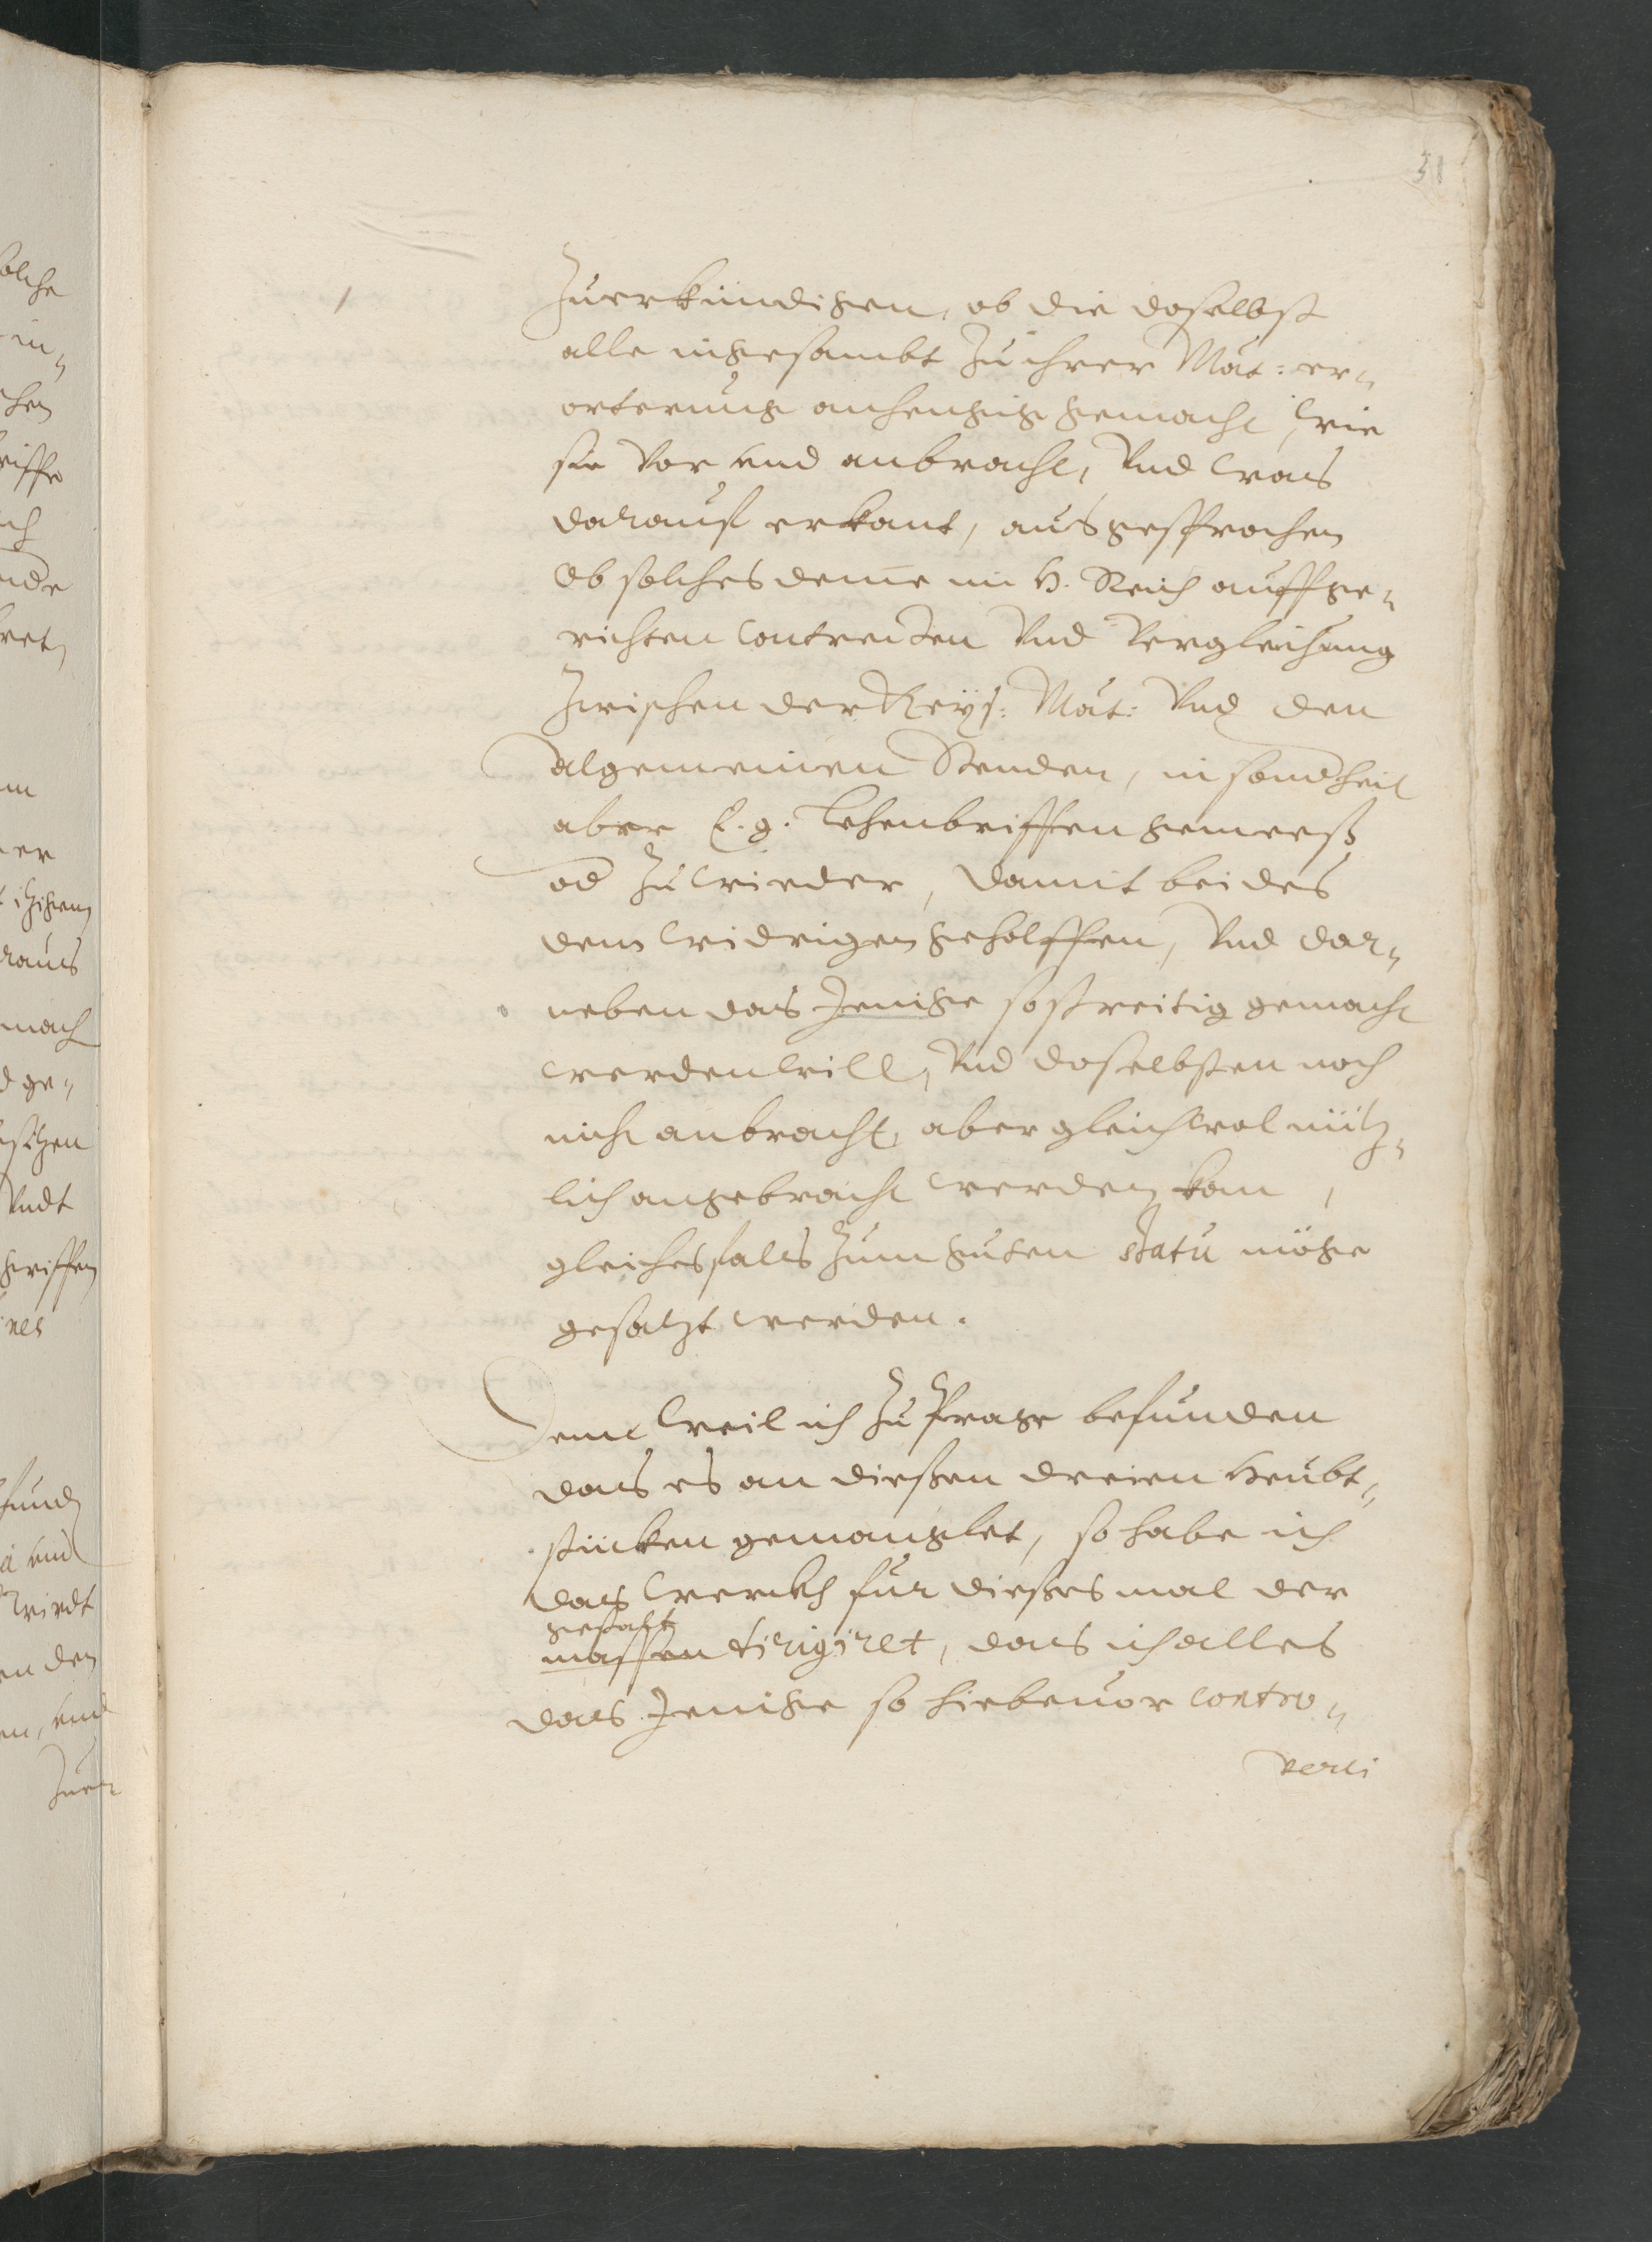 51
Zuerkündigen, ob die doselbst
alle ingesambt Zu ihrer Mat: er„
orterung anhengig gemacht, wie
sie vor und anbracht, Vnd was
darauf erkant, ausgesprochen
Ob solches deme im H. Reich auffge„
richten Contracten Vnd Vergleichung
Zwischen der Keys: Mat: Vnd den
algemeinen Stenden, in sonderheit
aber E. g. Lehenbriffen gemeeß
od Zuwieder, damit beides
dem widrigen geholffen, Vnd dar„
neben das Jenige so streitig gemacht
werden will, Vnd doselbsten noch
nicht anbracht, aber gleichwol nütz„
lich angebracht werden kan,
gleichesfals Zum guten statu möge
gesatzt werden.
Denn weil ich Zu Prage befunden
das es an dießen dreien Heubt„
stücken gemanglet, so habe ich
das werckh für dießes mal der
gestalt
massen dirigiret, das ich alles
das Jenige so hiebeuor Contro„
versi